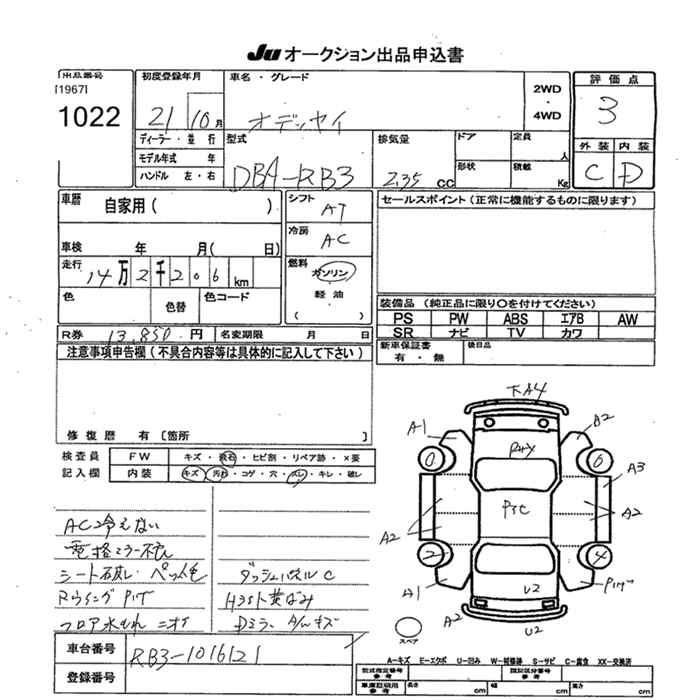 Ju オークション出品申込書
出品番号
[1967]
1022
初度登録年月
21 10月
車名・グレード
オデッセイ
2WD
・
4WD
評価点
3
外装 内装
C D
ディーラー・並行
モデル年式 年
ハンドル 左・右
型式
DBA-RB3
排気量
2.35 CC
ドア
形状
定員
人
積載
Kg
車歴
自家用( )
車検 年 月( 日)
走行
14万2千206km
色
色替
色コード
シフト
AT
冷房
AC
燃料
ガソリン
・
軽油
( )
セールスポイント(正常に機能するものに限ります)
装備品(純正品に限り○を付けてください)
PS PW ABS エアB AW
SR ナビ TV カワ
新車保証書
有・無
後日品
R券 13,850円 名変期限 月 日
注意事項申告欄(不具合内容等は具体的に記入して下さい)
修復歴 有〔箇所 〕
検査員
記入欄
FW キズ・飛石・ヒビ割・リペア跡・×要
内装 キズ・汚れ・コゲ・穴・スレ・キレ・破レ
AC冷えない
電格ミラー不良
シート破れ・
フロア水もれ ニオイ
ダッシュパネルC
H3ント黄ばみ
Dミラー
車台番号
RB3-1016121
登録番号
下A4
A1
A2
A3
A2
A2
A1
PSC
U2
A2
U2
6
4
2
スペア
A-キズ E-エクボ U-凹み W-補修跡 S-サビ C-腐食 XX-交換済
型式指定番号
参考
類別区分番号
参考
車庫証明用
参考
長さ cm
幅 cm
高さ cm